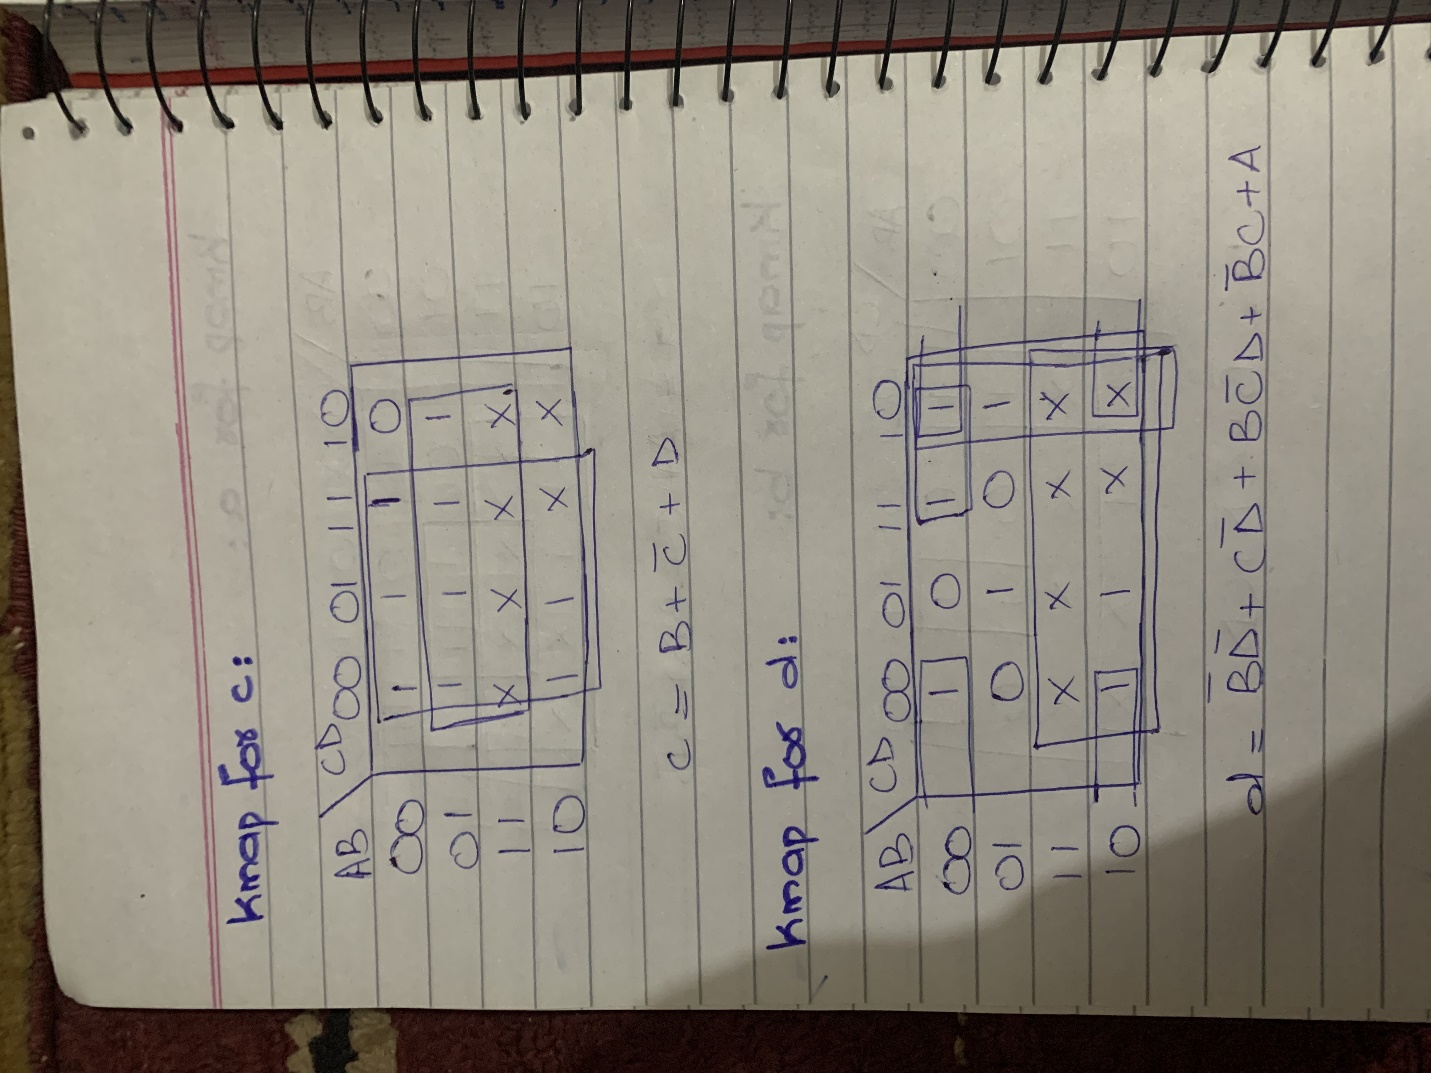 Kmap for c:
AB CD 00 01 11 10
00 1 1 1 0
01 1 1 1 1
11 X X X X
10 1 1 X X
C = B + C̅ + D
Kmap for d:
AB CD 00 01 11 10
00 1 0 1 1
01 0 1 0 1
11 X X X X
10 1 1 X X
d = B̅D̅ + CD̅ + BC̅D + B̅C + A